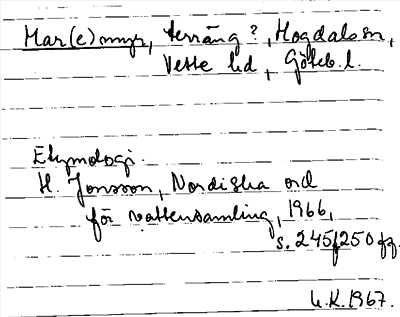 Mar(e)myr, terräng?, Hogdals sn,
Vette hd, Göteb. l.
Etymologi.
H. Jonsson, Nordiska ord
för vattensamling, 1966,
s. 245, 250 ff.
U.K. 1967.